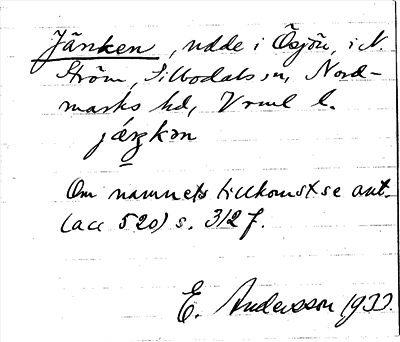 Jänken, udde i Ösjön, i N.
Ström, Silbodals sn, Nord-
marks hd, Vrml l.
Om namnets tillkomst se ant.
(acc 520) s. 312 f.
E. Andersson 1933.